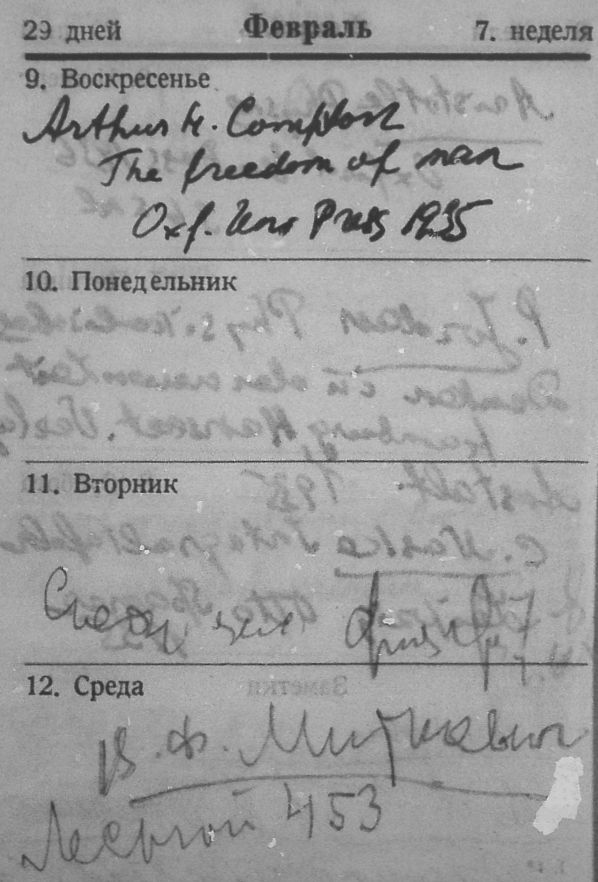 29 дней Февраль 7. неделя
9. Воскресенье
Arthur H. Compton
The freedom of man
Oxf. Univ Press 1935
10. Понедельник
11. Вторник
12. Среда
В. Ф. Миткевич
Лесной 453